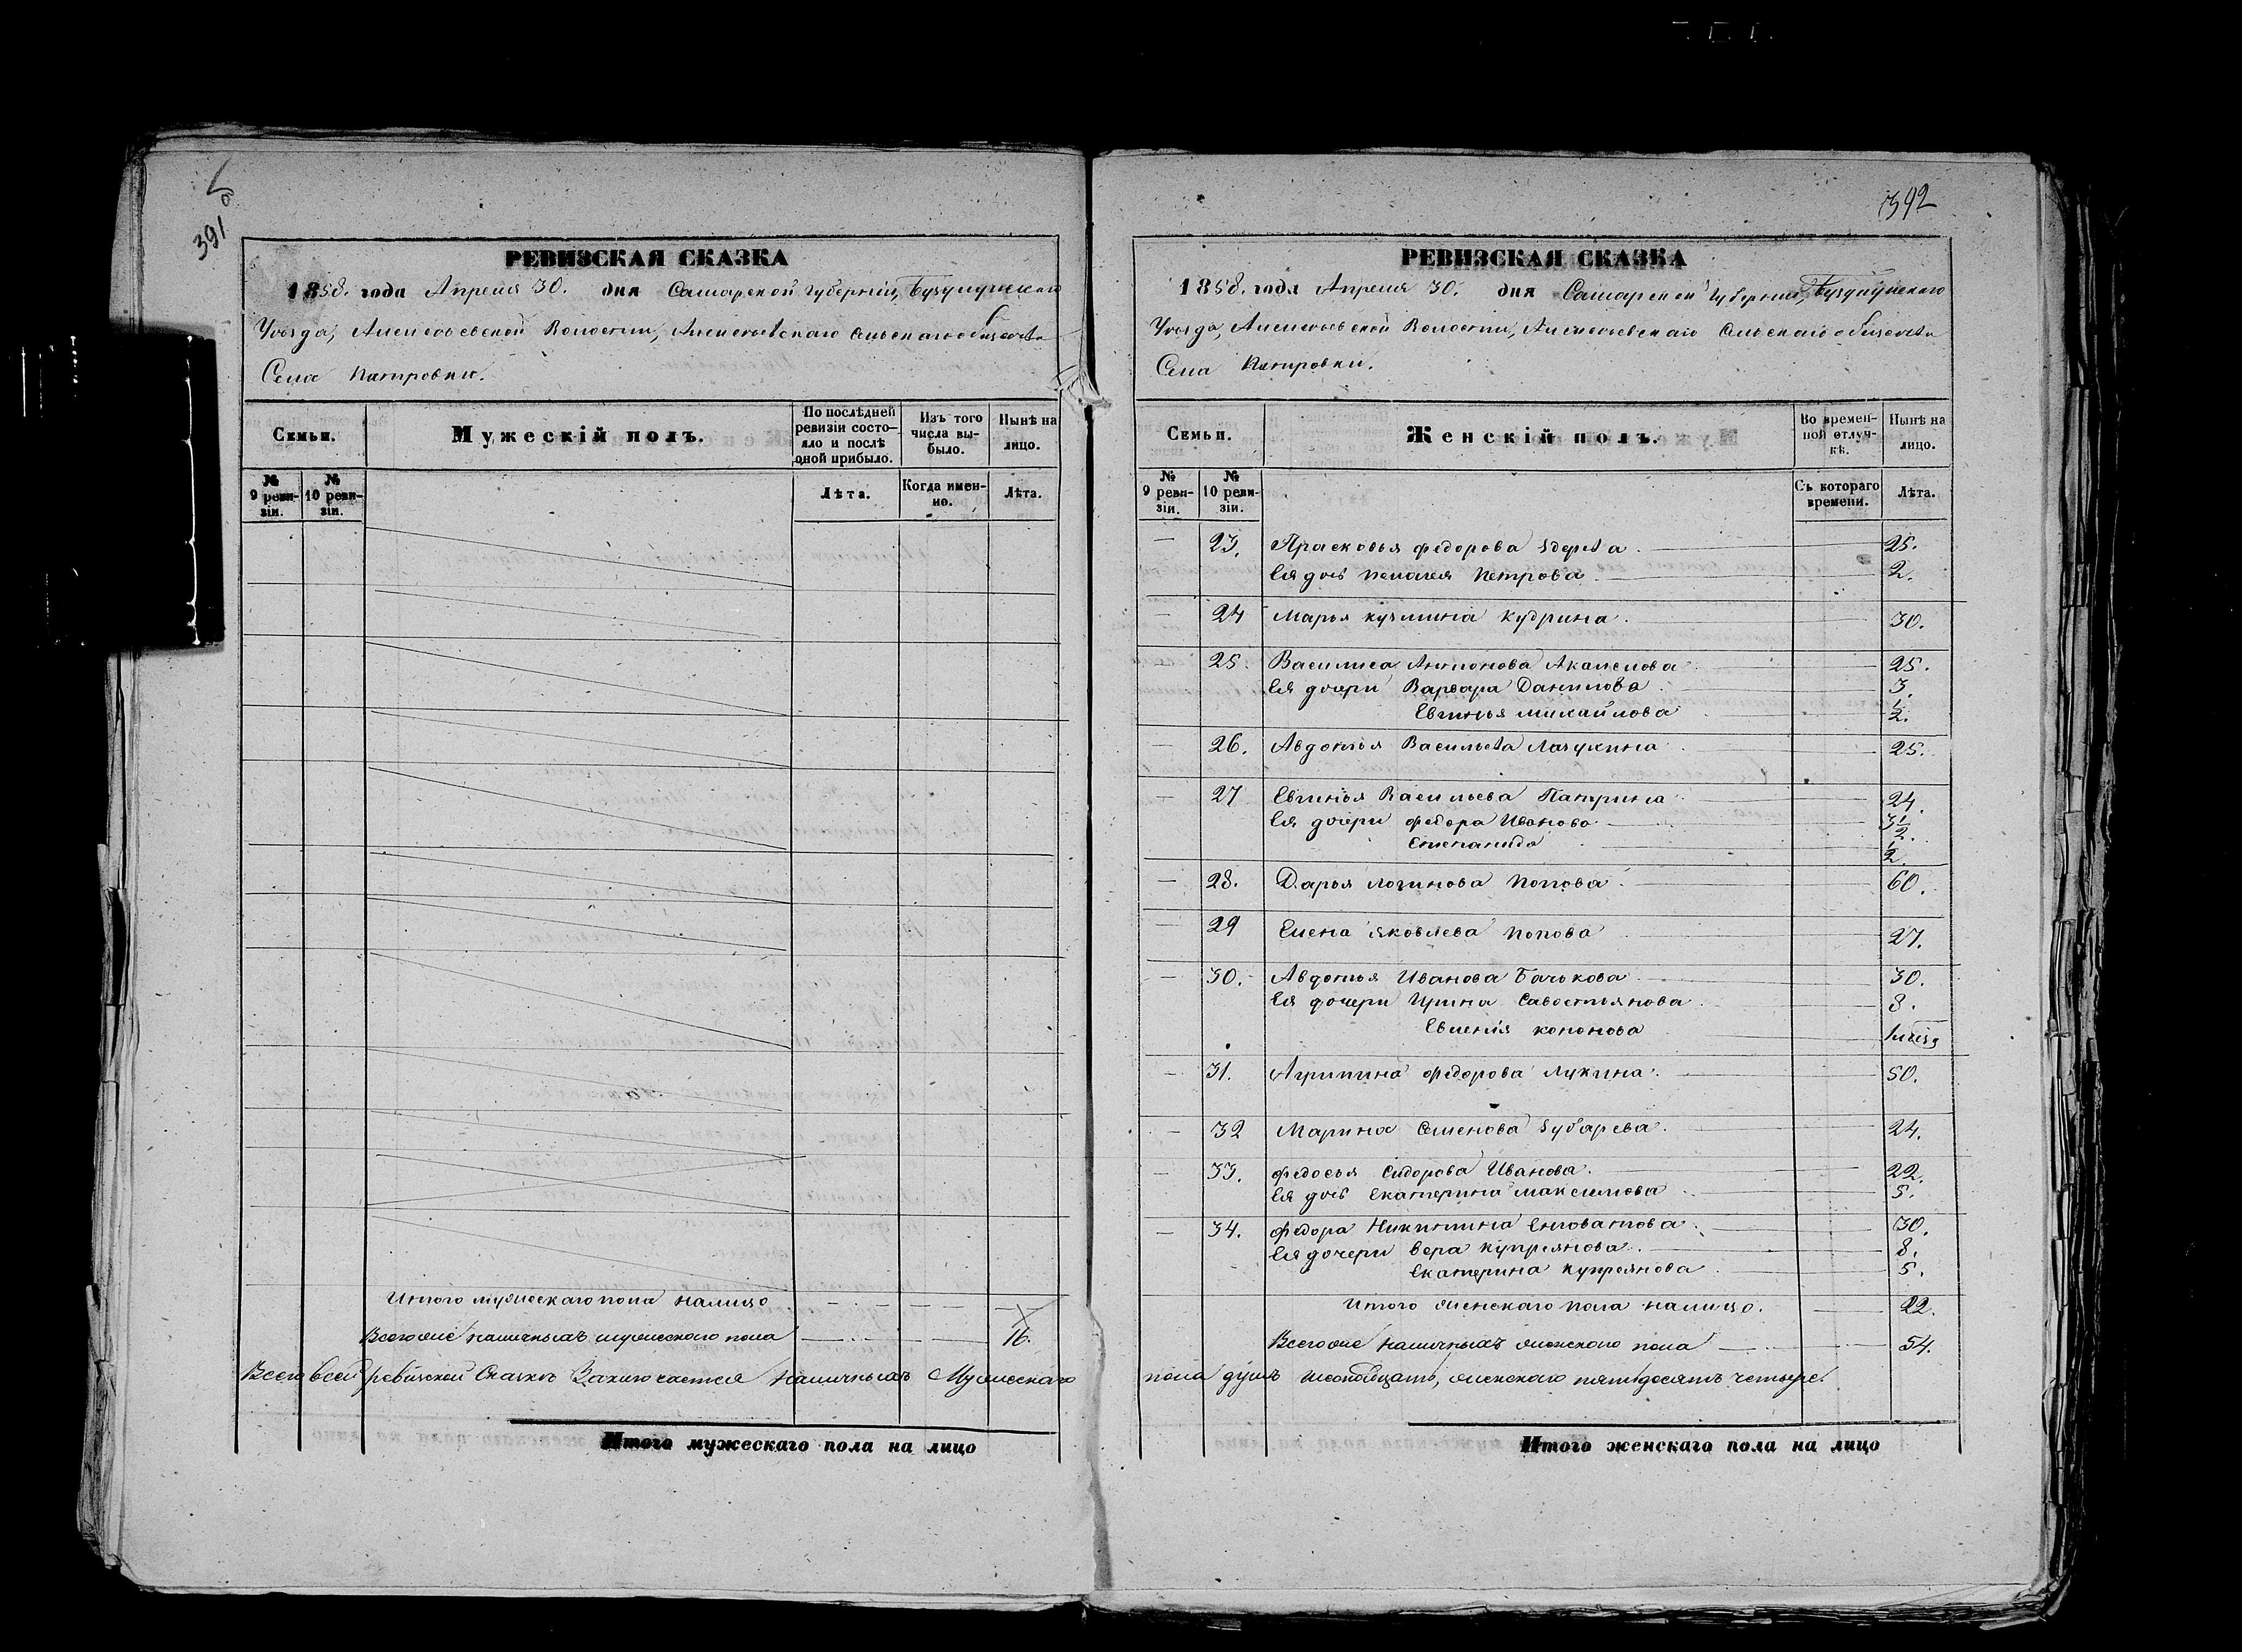 391 об
РЕВИЗСКАЯ СКАЗКА
1858. года Апреля 30. дня Самарской Губерніи, Бузулукскаго
Уѣзда, Алексеевской Волости, Алексеевскаго Сельскаго общества
Села Патровки.
Семьи. Мужескій полъ. По послѣдней ревизіи состояло и послѣ оной прибыло. Изъ того числа выбыло. Нынѣ на лицо.
№ 9 ревизіи. № 10 ревизіи. Лѣта. Когда именно. Лѣта.
Итого мужескаго пола налицо
Всего же наличныхъ мужескаго пола 16.
Всего въ сей ревизской Сказкѣ Заключается наличныхъ Мужескаго
Итого мужескаго пола на лицо
392
РЕВИЗСКАЯ СКАЗКА
1858. года Апреля 30. дня Самарской Губерніи, Бузулукскаго
Уѣзда, Алексеевской Волости, Алексеевскаго Сельскаго общества
Села Патровки.
Семьи. Женскій полъ. Во временной отлучкѣ. Нынѣ на лицо.
№ 9 ревизіи. № 10 ревизіи. Съ котораго времени. Лѣта.
— 23. Прасковья Федорова 25.
Ея дочь Пелагея Петрова 2.
— 24 Марья Кузмина Кудрина. 30.
25. Василиса Антонова 25.
Ея дочери Варвара Данилова 3.
Евгинья Михайлова 1/2.
— 26. Авдотья Васильева Лазукина 25.
— 27 Евгинья Васильева 24.
Ея дочери Федора Иванова 3 1/2.
Степанида 1/2.
— 28. Дарья Логинова Попова. 60.
— 29 Елена Яковлева Попова 27.
— 30. Авдотья Иванова Бачькова 30.
Ея дочери Ирина Савостьянова 8.
Евгенія Кононова
— 31. Агрипина Федорова Лукина. 50.
— 32 Марина Семенова Зубарева. 24.
— 33. Федосья Сидорова Иванова. 22.
Ея дочь Екатерина Максимова 5.
— 34. Федора Никитина 30.
Ея дочери Вера Купреянова. 8.
Екатерина Купреянова 5.
Итого женскаго пола налицо. 22.
Всего же наличныхъ женскаго пола 54.
пола душъ шеснадцать, женскаго пятьдесятъ четыре.
Итого женскаго пола на лицо